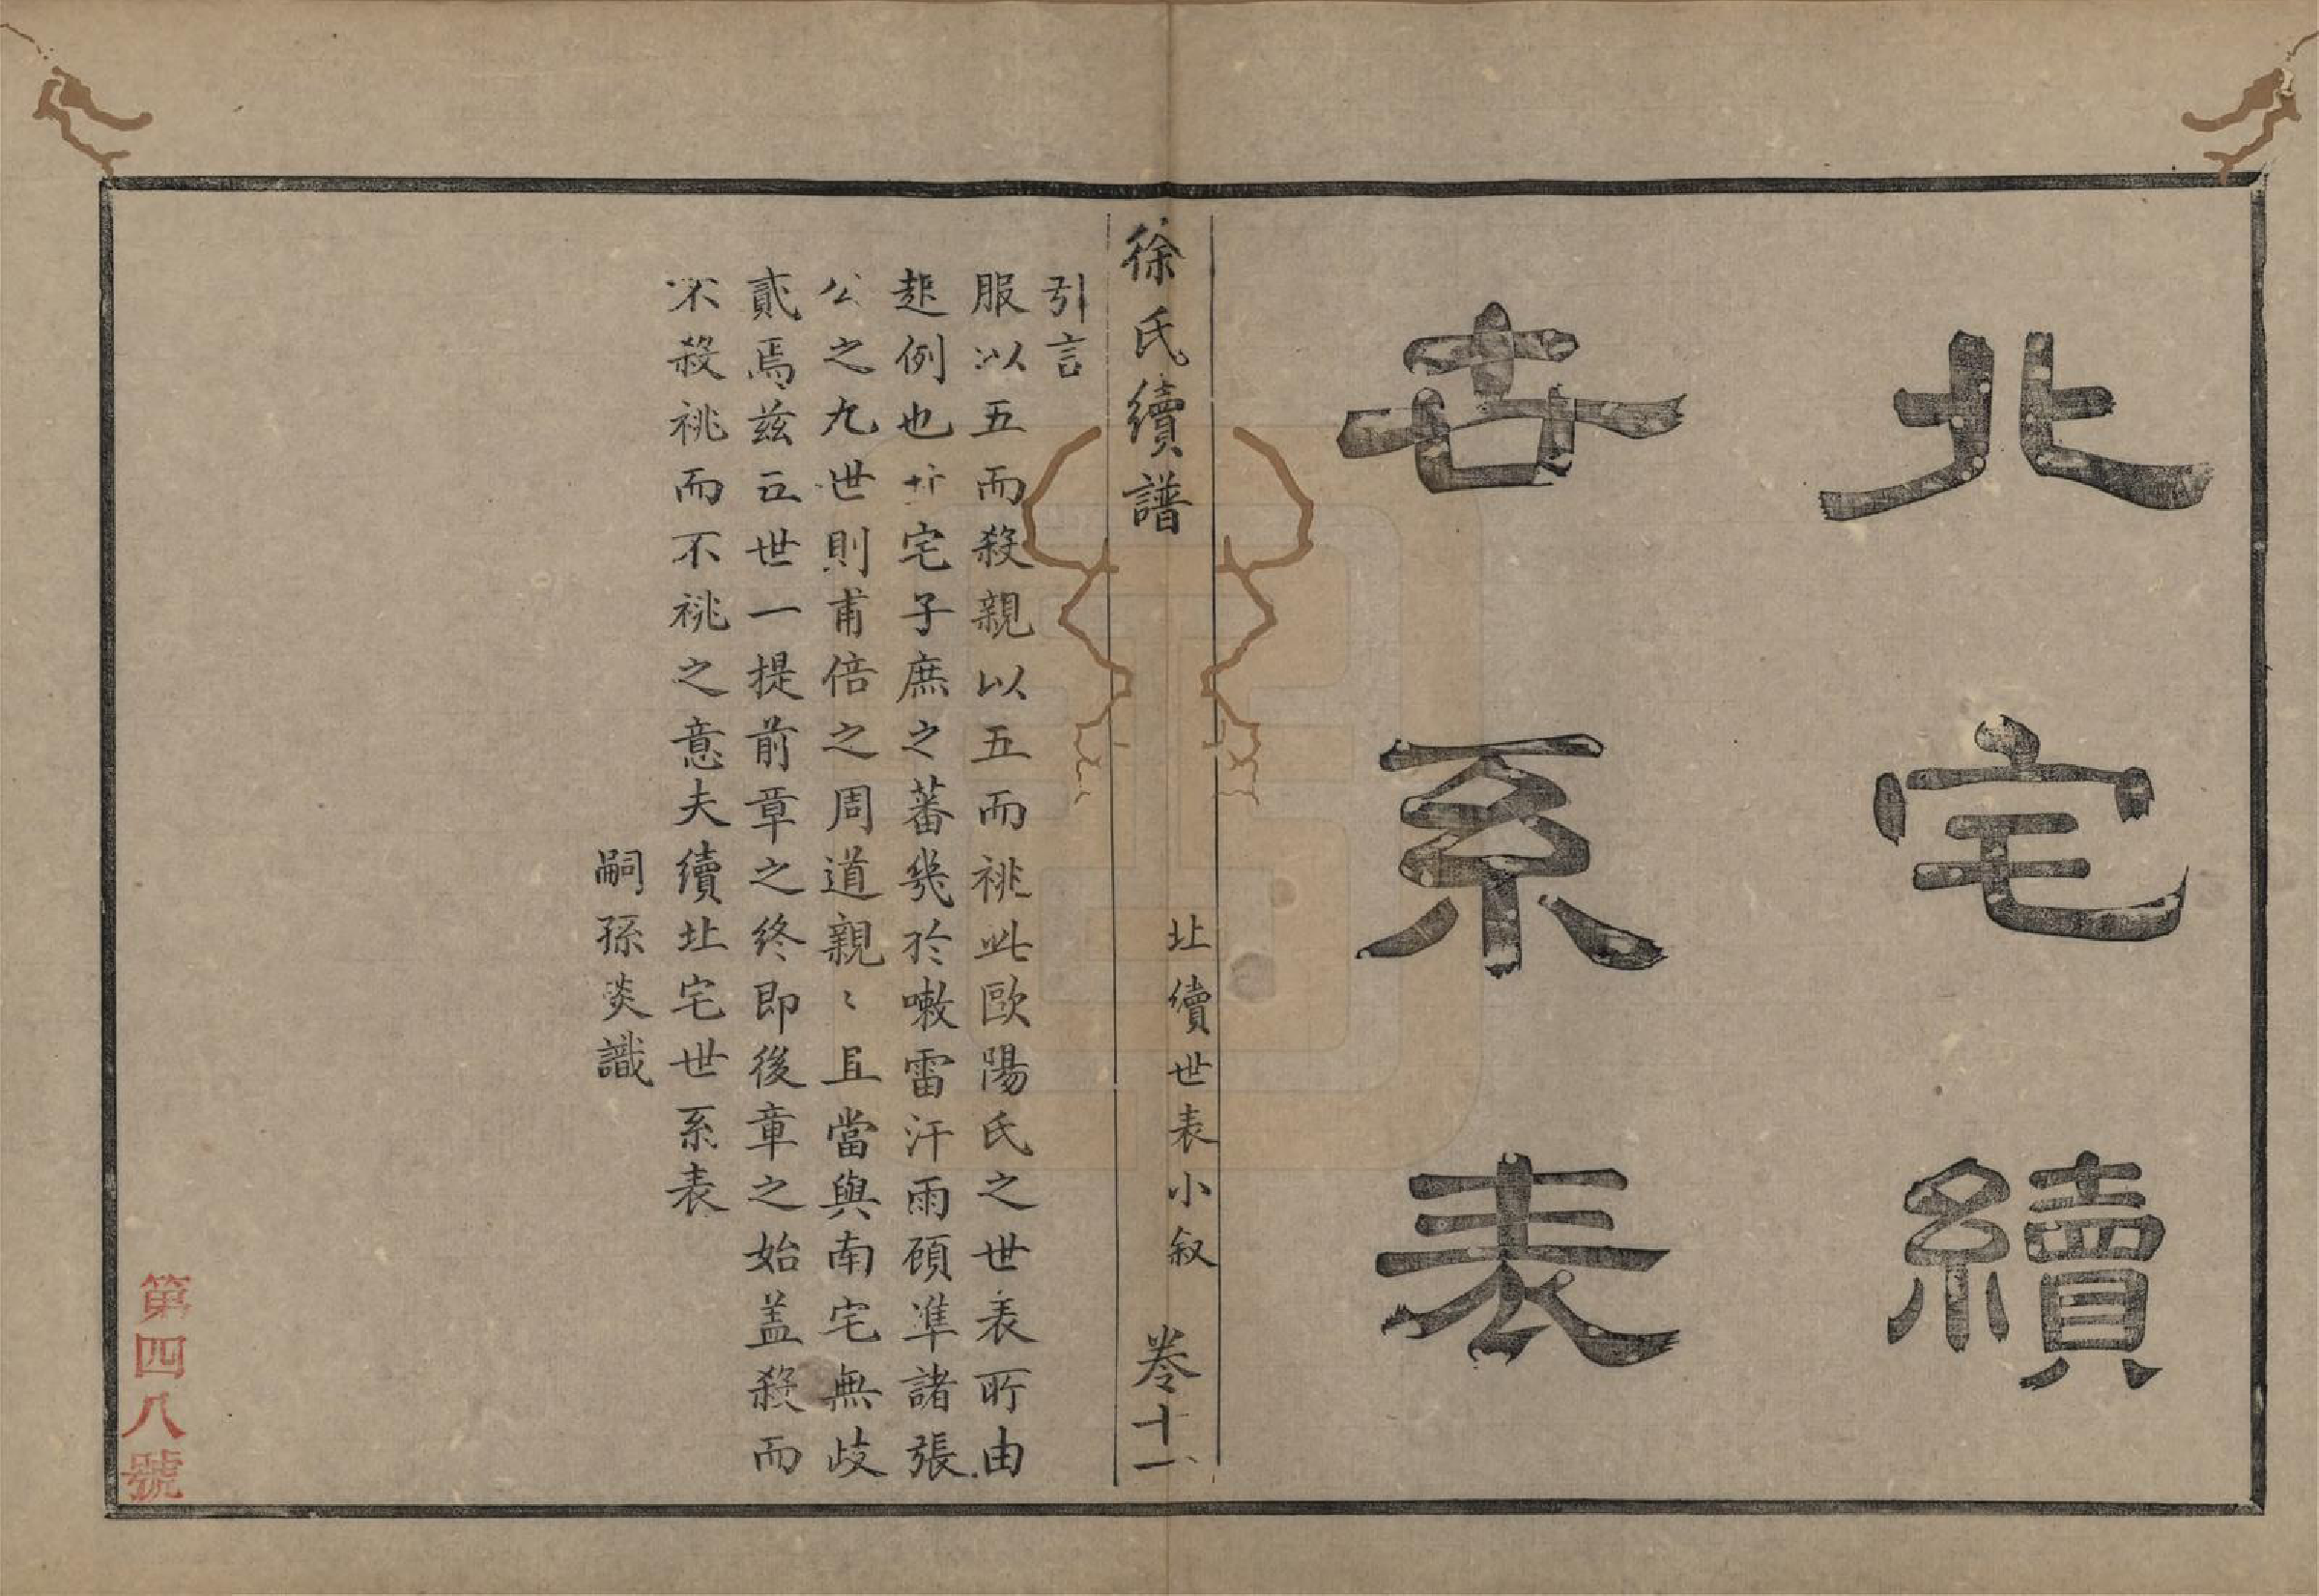 北宅續
世系表
徐氏續譜
北續世表小叙
卷十一
引言
服以五而殺親以五而祧此歐陽氏之世表所由
起例也北宅子庶之蕃幾於嗽雷汗雨頋準諸張
公之九世則甫倍之周道親〻且當與南宅無歧
貳焉茲五世一提前章之終即後章之始盖殺而
不殺祧而不祧之意夫續北宅世系表
嗣孫炎識
第四八號